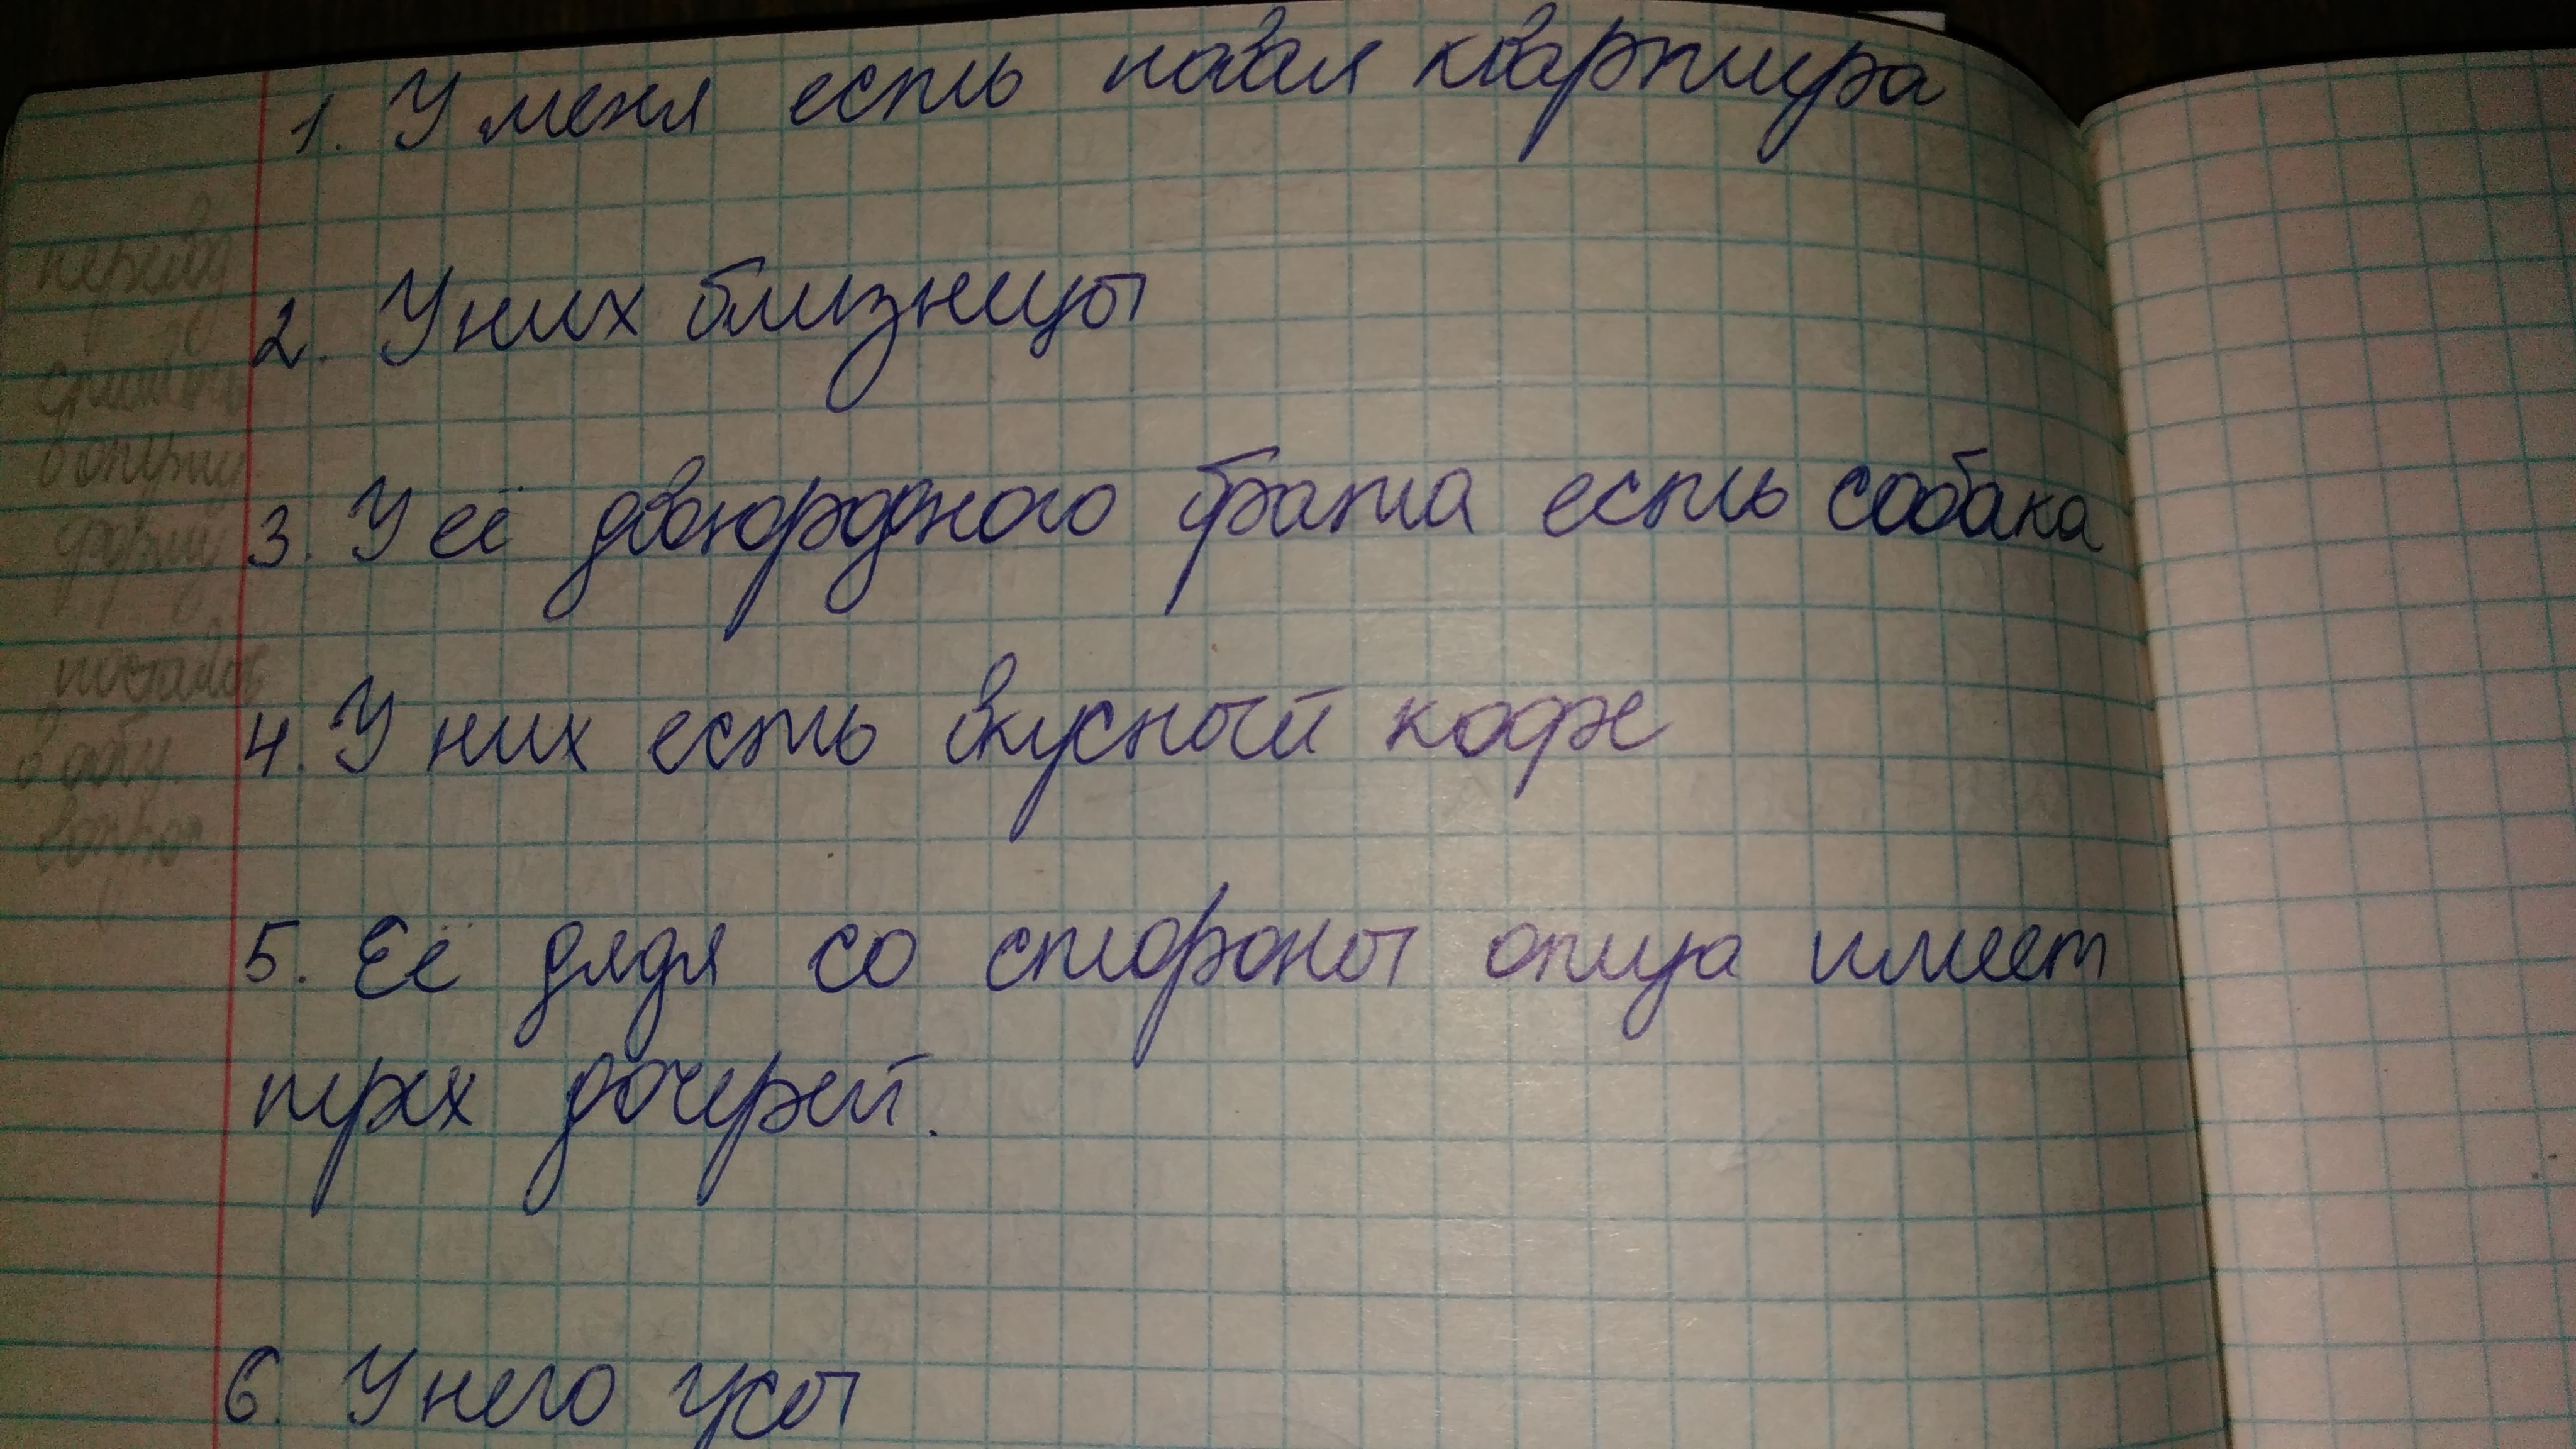 1. У меня есть новая квартира
2. У них близнецы
3. У её двоюродного брата есть собака
4. У них есть вкусный кофе
5. Её дядя со стороны отца имеет
трех дочерей.
6. У него усы